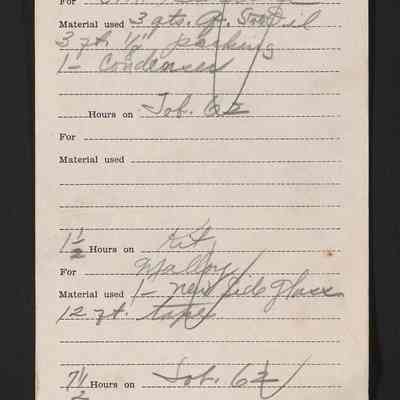 For
Material used 3 qts. Oil
3 ft. 1/8" packing
1 - Condenser
Hours on Job. 62
For
Material used
1 1/2 Hours on Kit
For Malloy
Material used 1 - new Sid glass
12 ft. tape
7 1/2 Hours on Job. 62